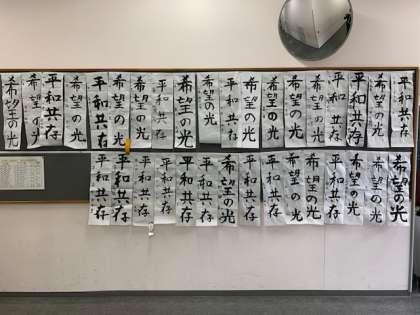 希望の光
希望の光
平和共存
希望の光
平和共存
希望の光
希望の光
平和共存
希望の光
希望の光
平和共存
希望の光
希望の光
希望の光
希望の光
平和共存
平和共存
希望の光
希望の光
平和共存
平和共存
平和共存
平和共存
平和共存
平和共存
希望の光
平和共存
希望の光
希望の光
希望の光
平和共存
希望の光
希望の光
希望の光